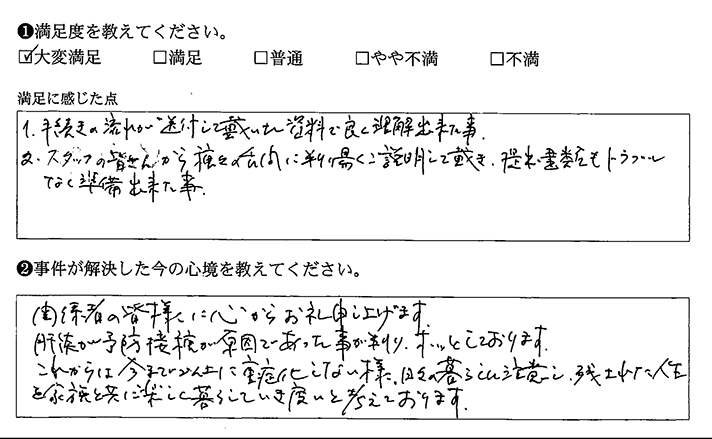 ❶満足度を教えてください。
☑大変満足 □満足 □普通 □やや不満 □不満
満足に感じた点
1. 手続きの流れが送付して戴いた資料で良く理解出来た事。
2. スタッフの皆さんから種々の案内に判り易くご説明して戴き、提出書類もトラブル
なく準備出来た事。
❷事件が解決した今の心境を教えてください。
関係者の皆様に心からお礼申し上げます
肝炎が予防接種が原因であった事が判り、ホッとしております。
これからは今まで以上に重症化しない様、日々の暮らしに注意し、残された人生
を家族と共に楽しく暮らしていき度いと考えております。